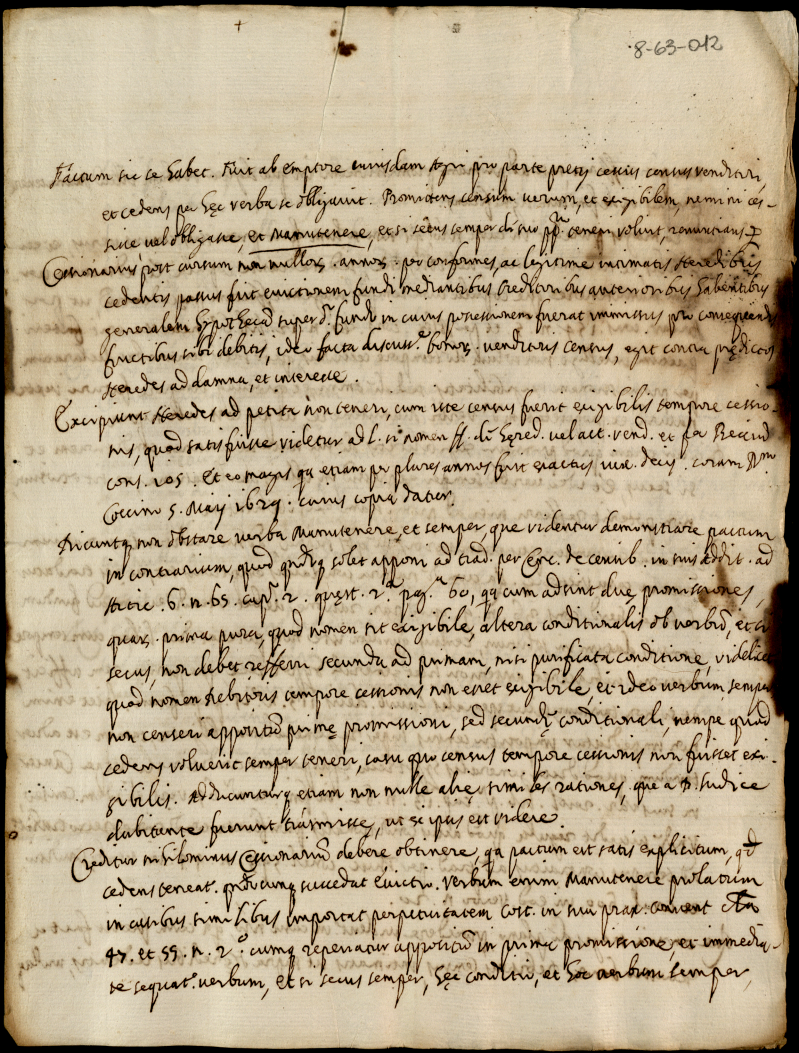 8-63-012
Factum sic se habet. Fuit ab emptore cuiusdam Agri pro parte pretij cessus census venditori,
et cedens per hęc verba se obligavit. Promittens censum verum, et exigibilem, nemini ces-
sisse vel obligasse, et Manutenere, et si secus semper de suo pp.º teneri voluit, renuncians
Cessionarius post cursum non nullorz. annorz. pro conformes, ac legitime intimatis Heredibus
cedentis passus fuit evictionem fundi mediantibus Creditoribus anterioribus habentibus
generalem hypothecã super d.º fundo in cuius possessionem fuerat immissus pro consequendis
fructibus sibi debitis, ideo facta discuss.e bonorz. venditoris census, egit contra prędictos
Heredes ad damna, et interesse.
Excipiunt Heredes ad petita non teneri, cum iste census fuerit exigibilis tempore cessio-
nis, quod satis fuisse videtur ad l. si nomen ff. de hęred. vel act. vend. et per
cons. 105. Et eo magis qa etiam per plures annos fuit exactus iux. decis. coram R.m
Coccino 5. Maij 1629. cuius copia datur.
Dicuntq; non obstare verba Manutenere, et semper, que videntur demonstrare pactum
in contrarium, quod solet apponi ad trad. per Cenc. de censib. in suis addit. ad
Artic. 6. n. 65. cap. 2. quęst. 2.a pag.a 60, qa cum adsint duę promissiones,
quarz. prima pura, quod nomen sit exigibile, altera conditionalis ob verbũ, et si
secus, non debet referri secunda ad primam, nisi purificata conditione, videlicet
quod nomen debitoris tempore cessionis non esset exigibile, et ideo verbum semper
non censeri appositũ primę promissioni, sed secundę conditionali, nempe quod
cedens voluerit semper teneri, casu quo census tempore cessionis non fuisset exi-
gibilis. Adducunturq; etiam non nullę alię similes rationes, que a D. Iudice
dubitante fuerunt trãsmissę, ut ex ipsis est videre.
Creditur nihilominus Cessionariũ debere obtinere, qa pactum est satis explicitum, qd
cedens teneat. succedat Evictio. Verbum enim Manutenere prolatum
in casibus similibus importat perpetuitatem Cost. in sua prax.
47. et 55. n. 2.º cumq; reperiatur appositũ in prima promissione, et immedia-
te sequat. verbum, et si secus semper, hęc conditio, et hoc verbum semper,